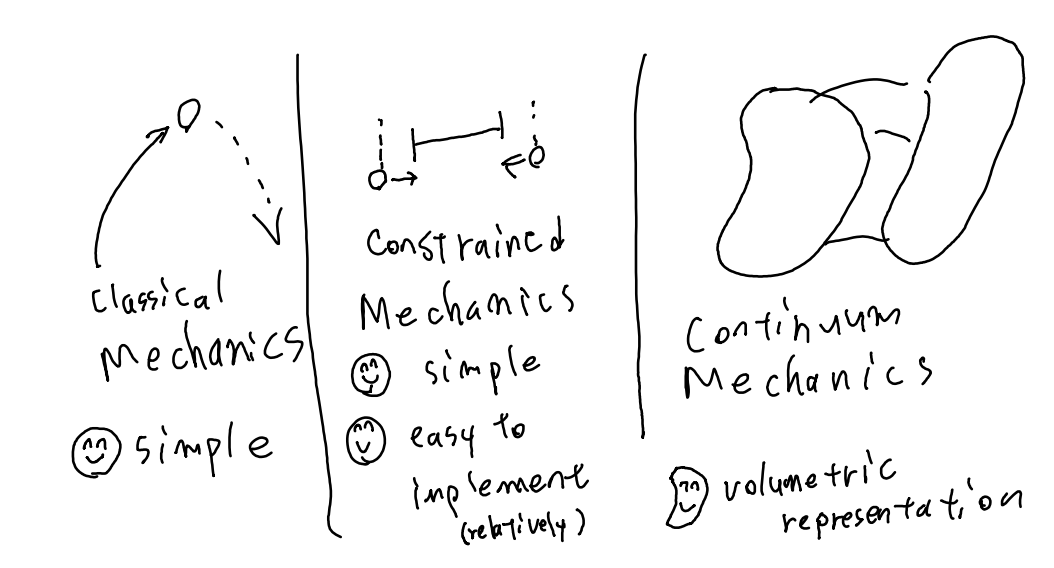 Classical
Mechanics
simple
Constrained
Mechanics
simple
easy to
implement
(relatively)
Continuum
Mechanics
volumetric
representation